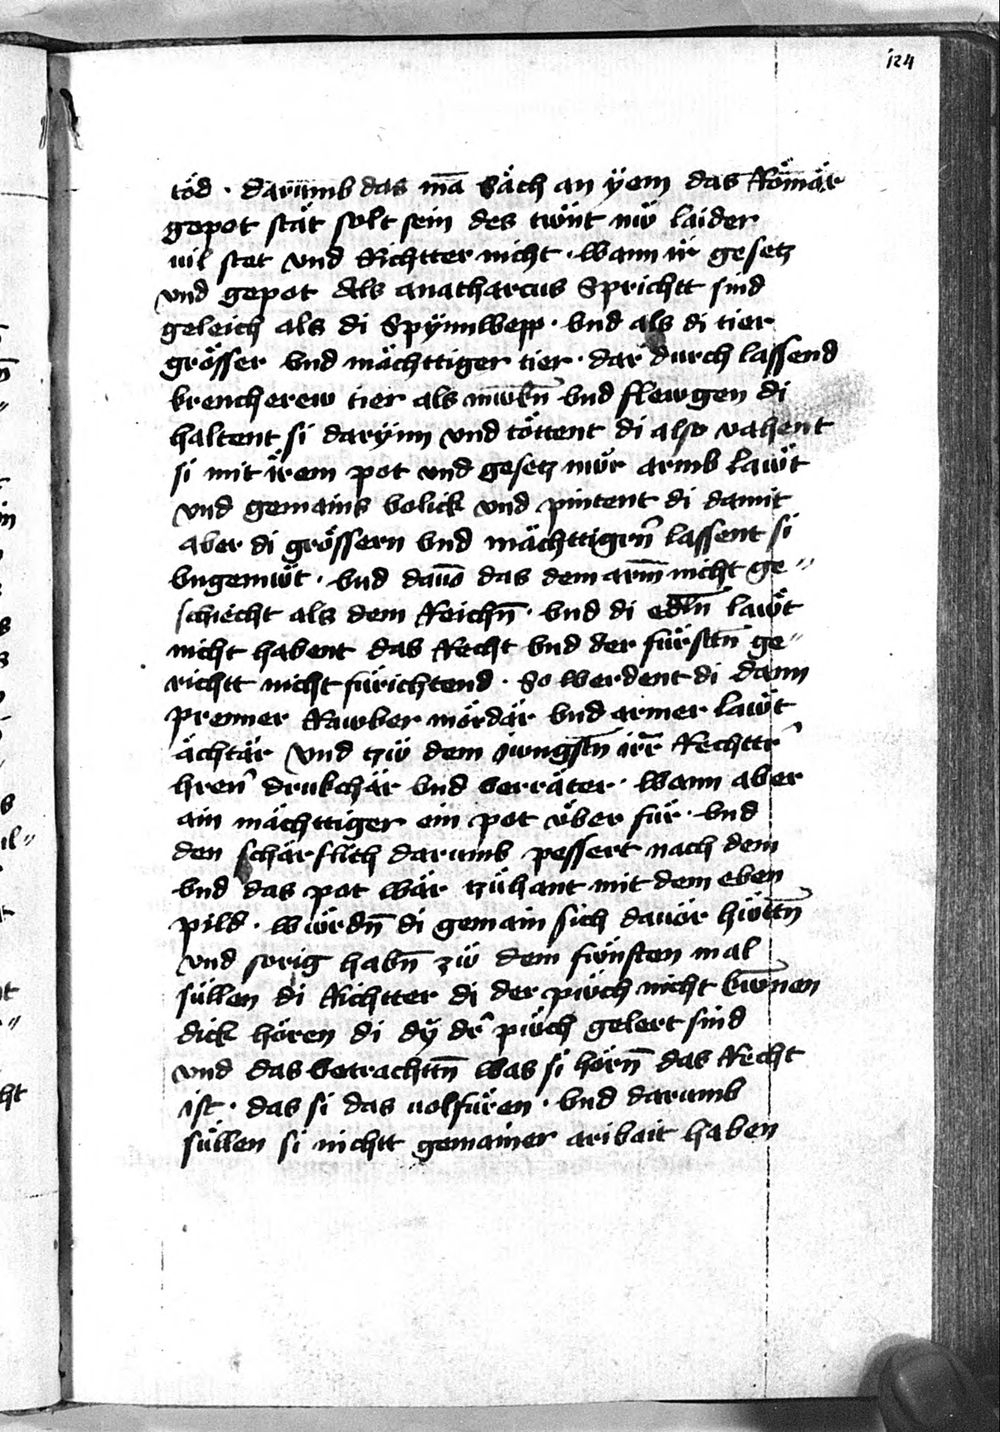 124
töd · darumb das mā säch an ÿem das Römär
gepot stät solt sein des twͦnt nwͦ laider
uil stet vnd Richtter nicht · wann ir gesetz
vnd gepot Als anatharcus Sprichtt sind
geleich als di Spÿnnwepp · vnd als di tier
grösser vnd mächttiger tier · dar durch lassend
krencherew tier als mwkn̄ vnd flewgen di
haltent si darÿnn vnd töttent di also vahent
si mit irem pot vnd gesetz nwͦr armb lawͦt
vnd gemains volick vnd pintent di damit
aber di grössern vnd mächttigrn̄ lassent si
vngemwͦt · vnd dauō das dem arm̄ nicht ge〃
schiecht als dem Reichn̄ · vnd di edln̄ lawͦt
nicht habent das Recht vnd der fürstn̄ ge〃
richtt nicht fürichtend · So werdent di dann
prenner Rawber mördär vnd armer lawͦt
ächtär vnd tzwͦ dem iwngstn̄ irr̄ Rechttr̄
hren̄ drukchär vnd verräter · wann aber
ain mächttiger ein pot vͦber für · vnd
den schärflich darumb pessert nach dem
vnd das pot wär tzühant mit dem eben
pild · wwͦrdn̄ di gemain sich dauör hwͦttn̄
vnd sorig habn̄ zwͦ dem fwͦnften mal
süllen di Richtter di der pwͦch nicht kwͦnnen
dick hören di dÿ dr̄ pwͦch gelert sind
vnd das betrachttn̄ was si hörn̄ das Recht
ist · das si das uolfüren · vnd darumb
süllen si nichtt gemainer aribait haben